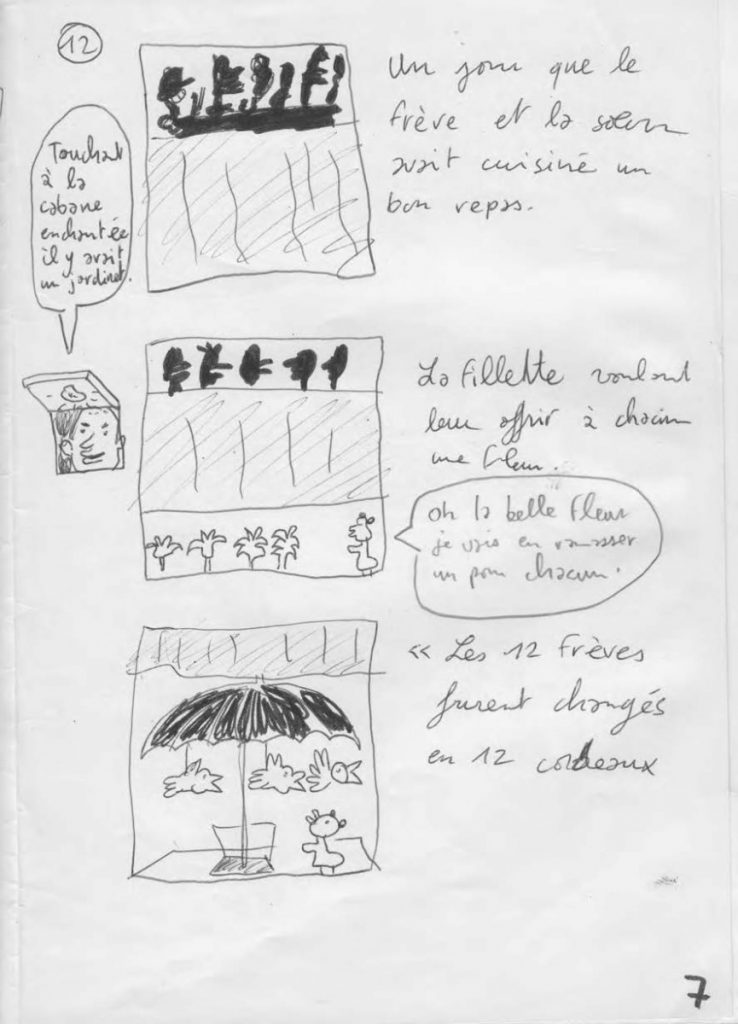 12
Un jour que le
frère et la soeur
avait cuisiné un
bon repas.
Touchant
à la
cabane
enchantée
il y avait
un jardinet.
La fillette voulant
leur offrir à chacun
une fleur.
oh la belle fleur
je vais en ramasser
un pour chacun.
« Les 12 frères
furent changés
en 12 corbeaux
7